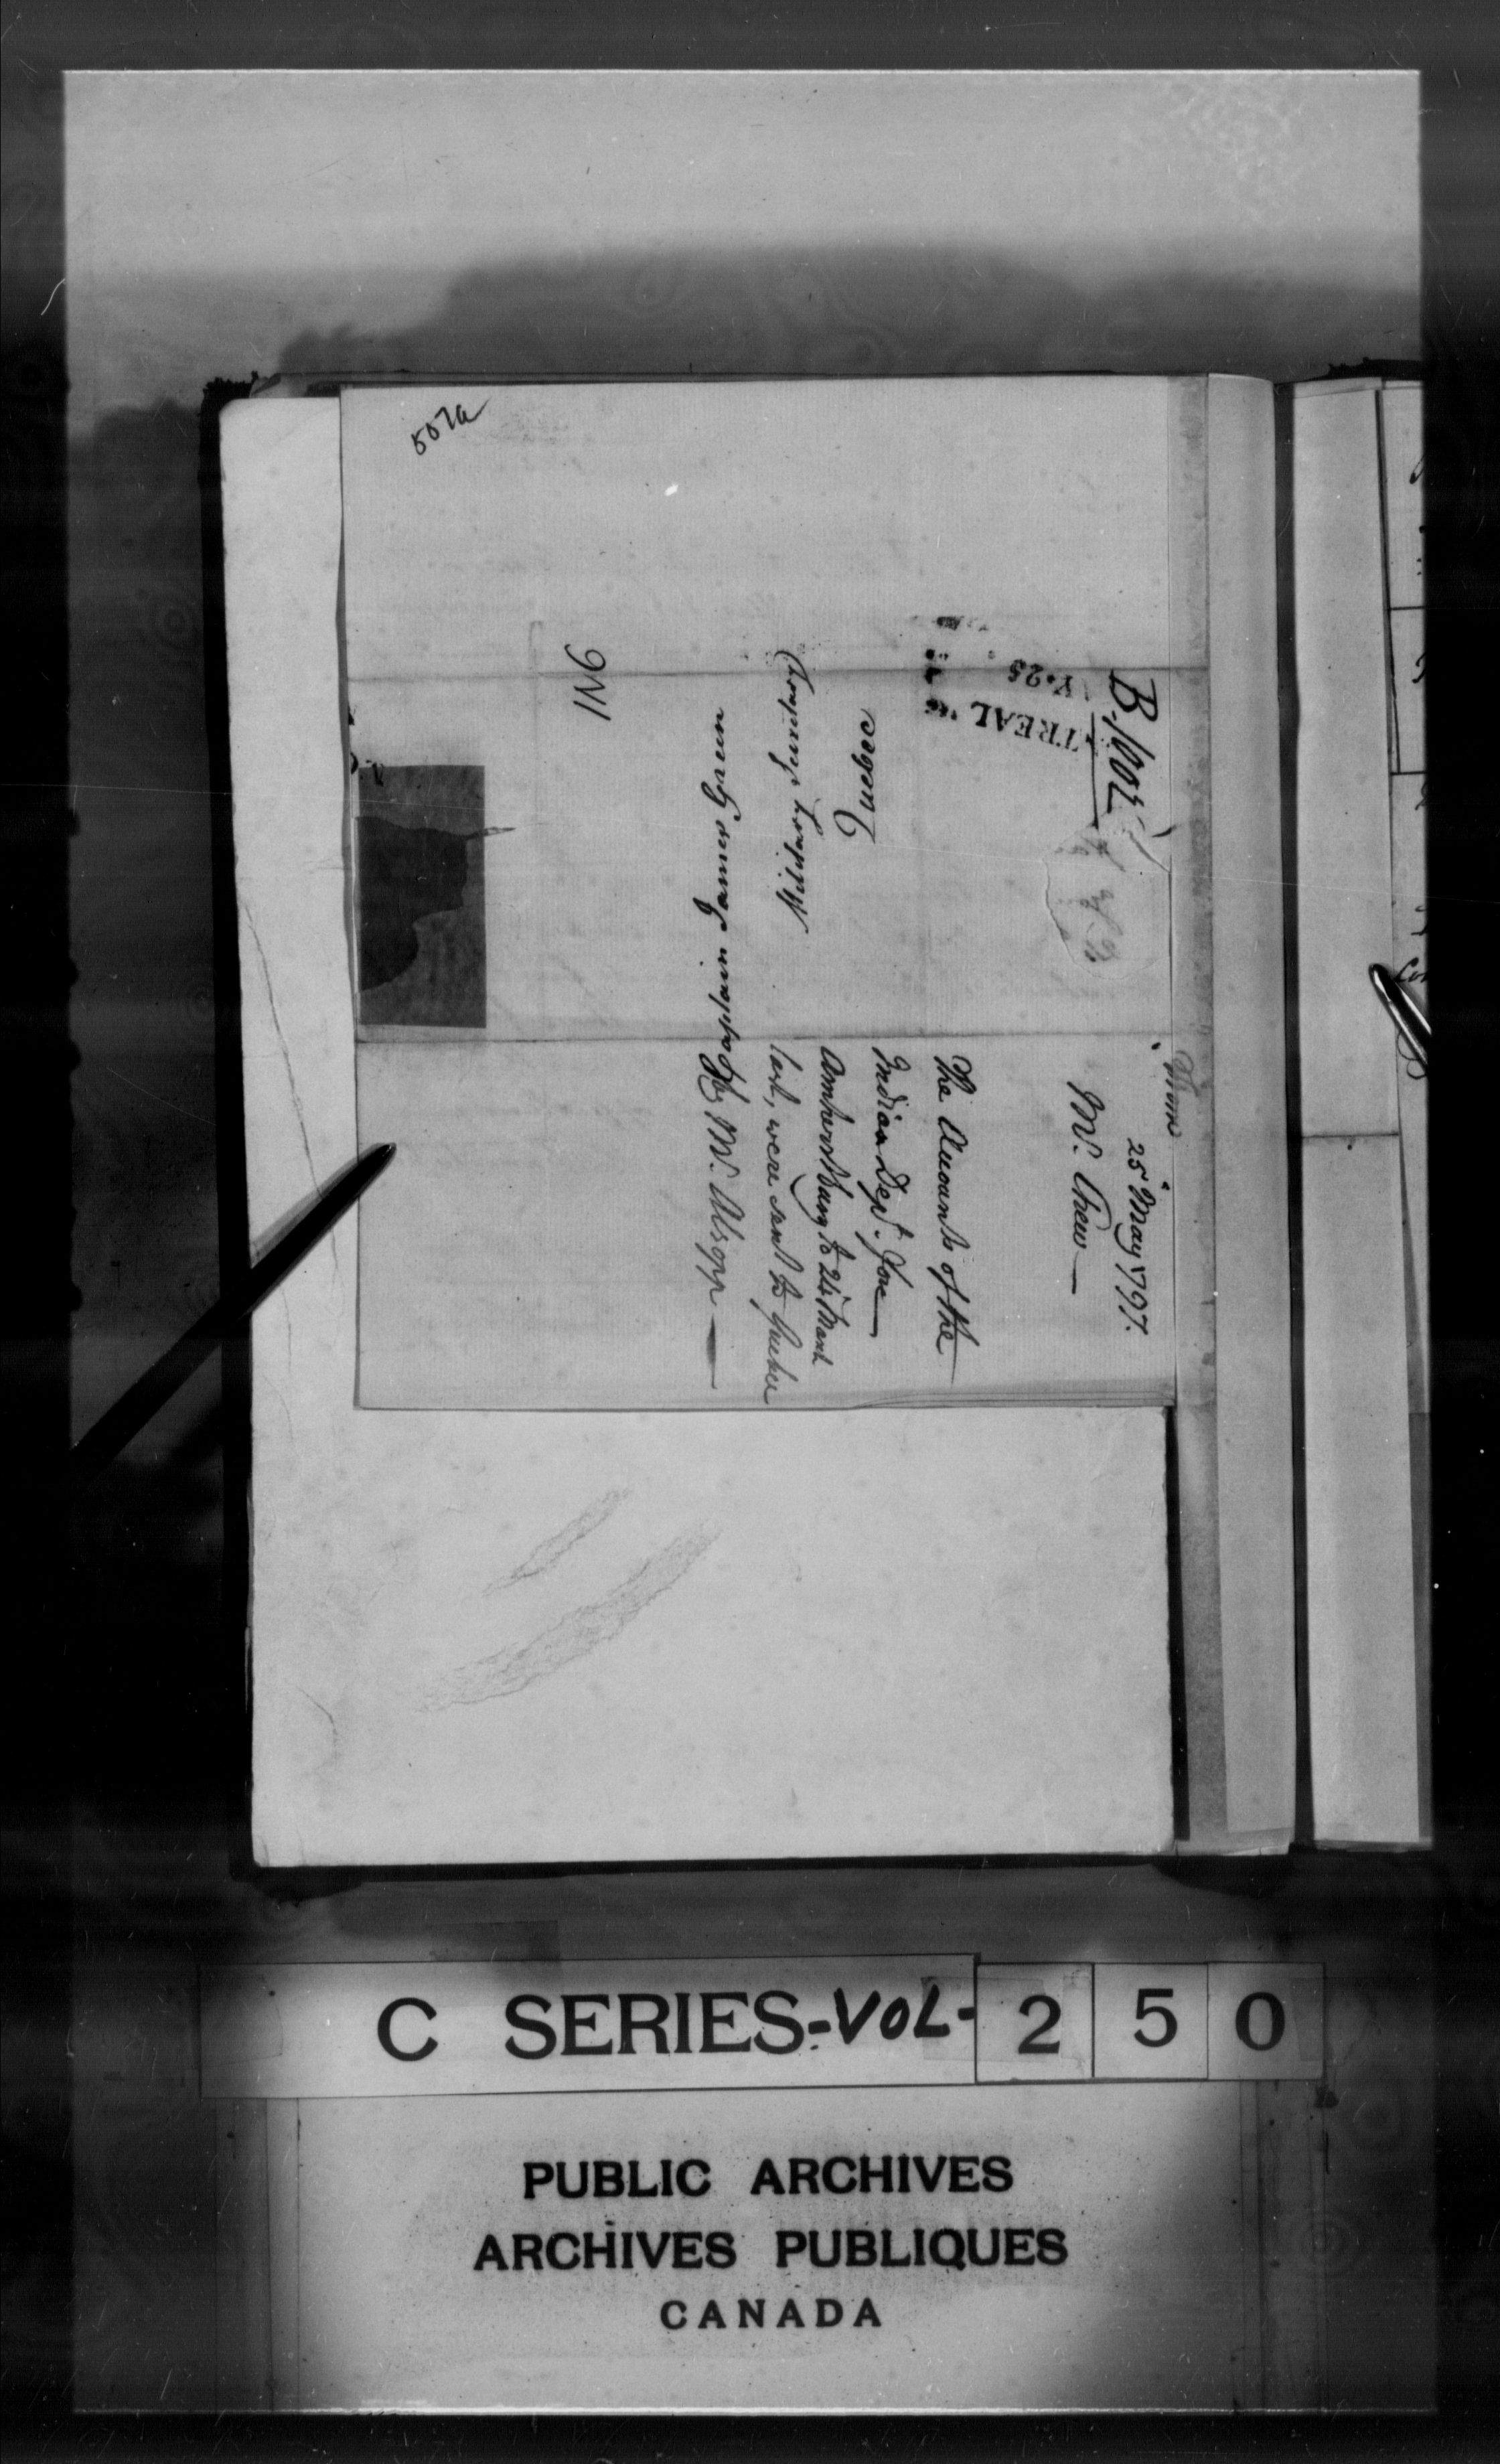 507a
1N6
Captain James Green
Military Secretary
Quebec
TREAL
Y. 25
B/
From
25th May 1797.
Mr. Chew—
The Accounts of the
Indian Dept. for
Amherstburg to 24 March
last, were sent to Quebec
by Mr. Alsopp—
C SERIES-VOL-250
PUBLIC ARCHIVES
ARCHIVES PUBLIQUES
CANADA